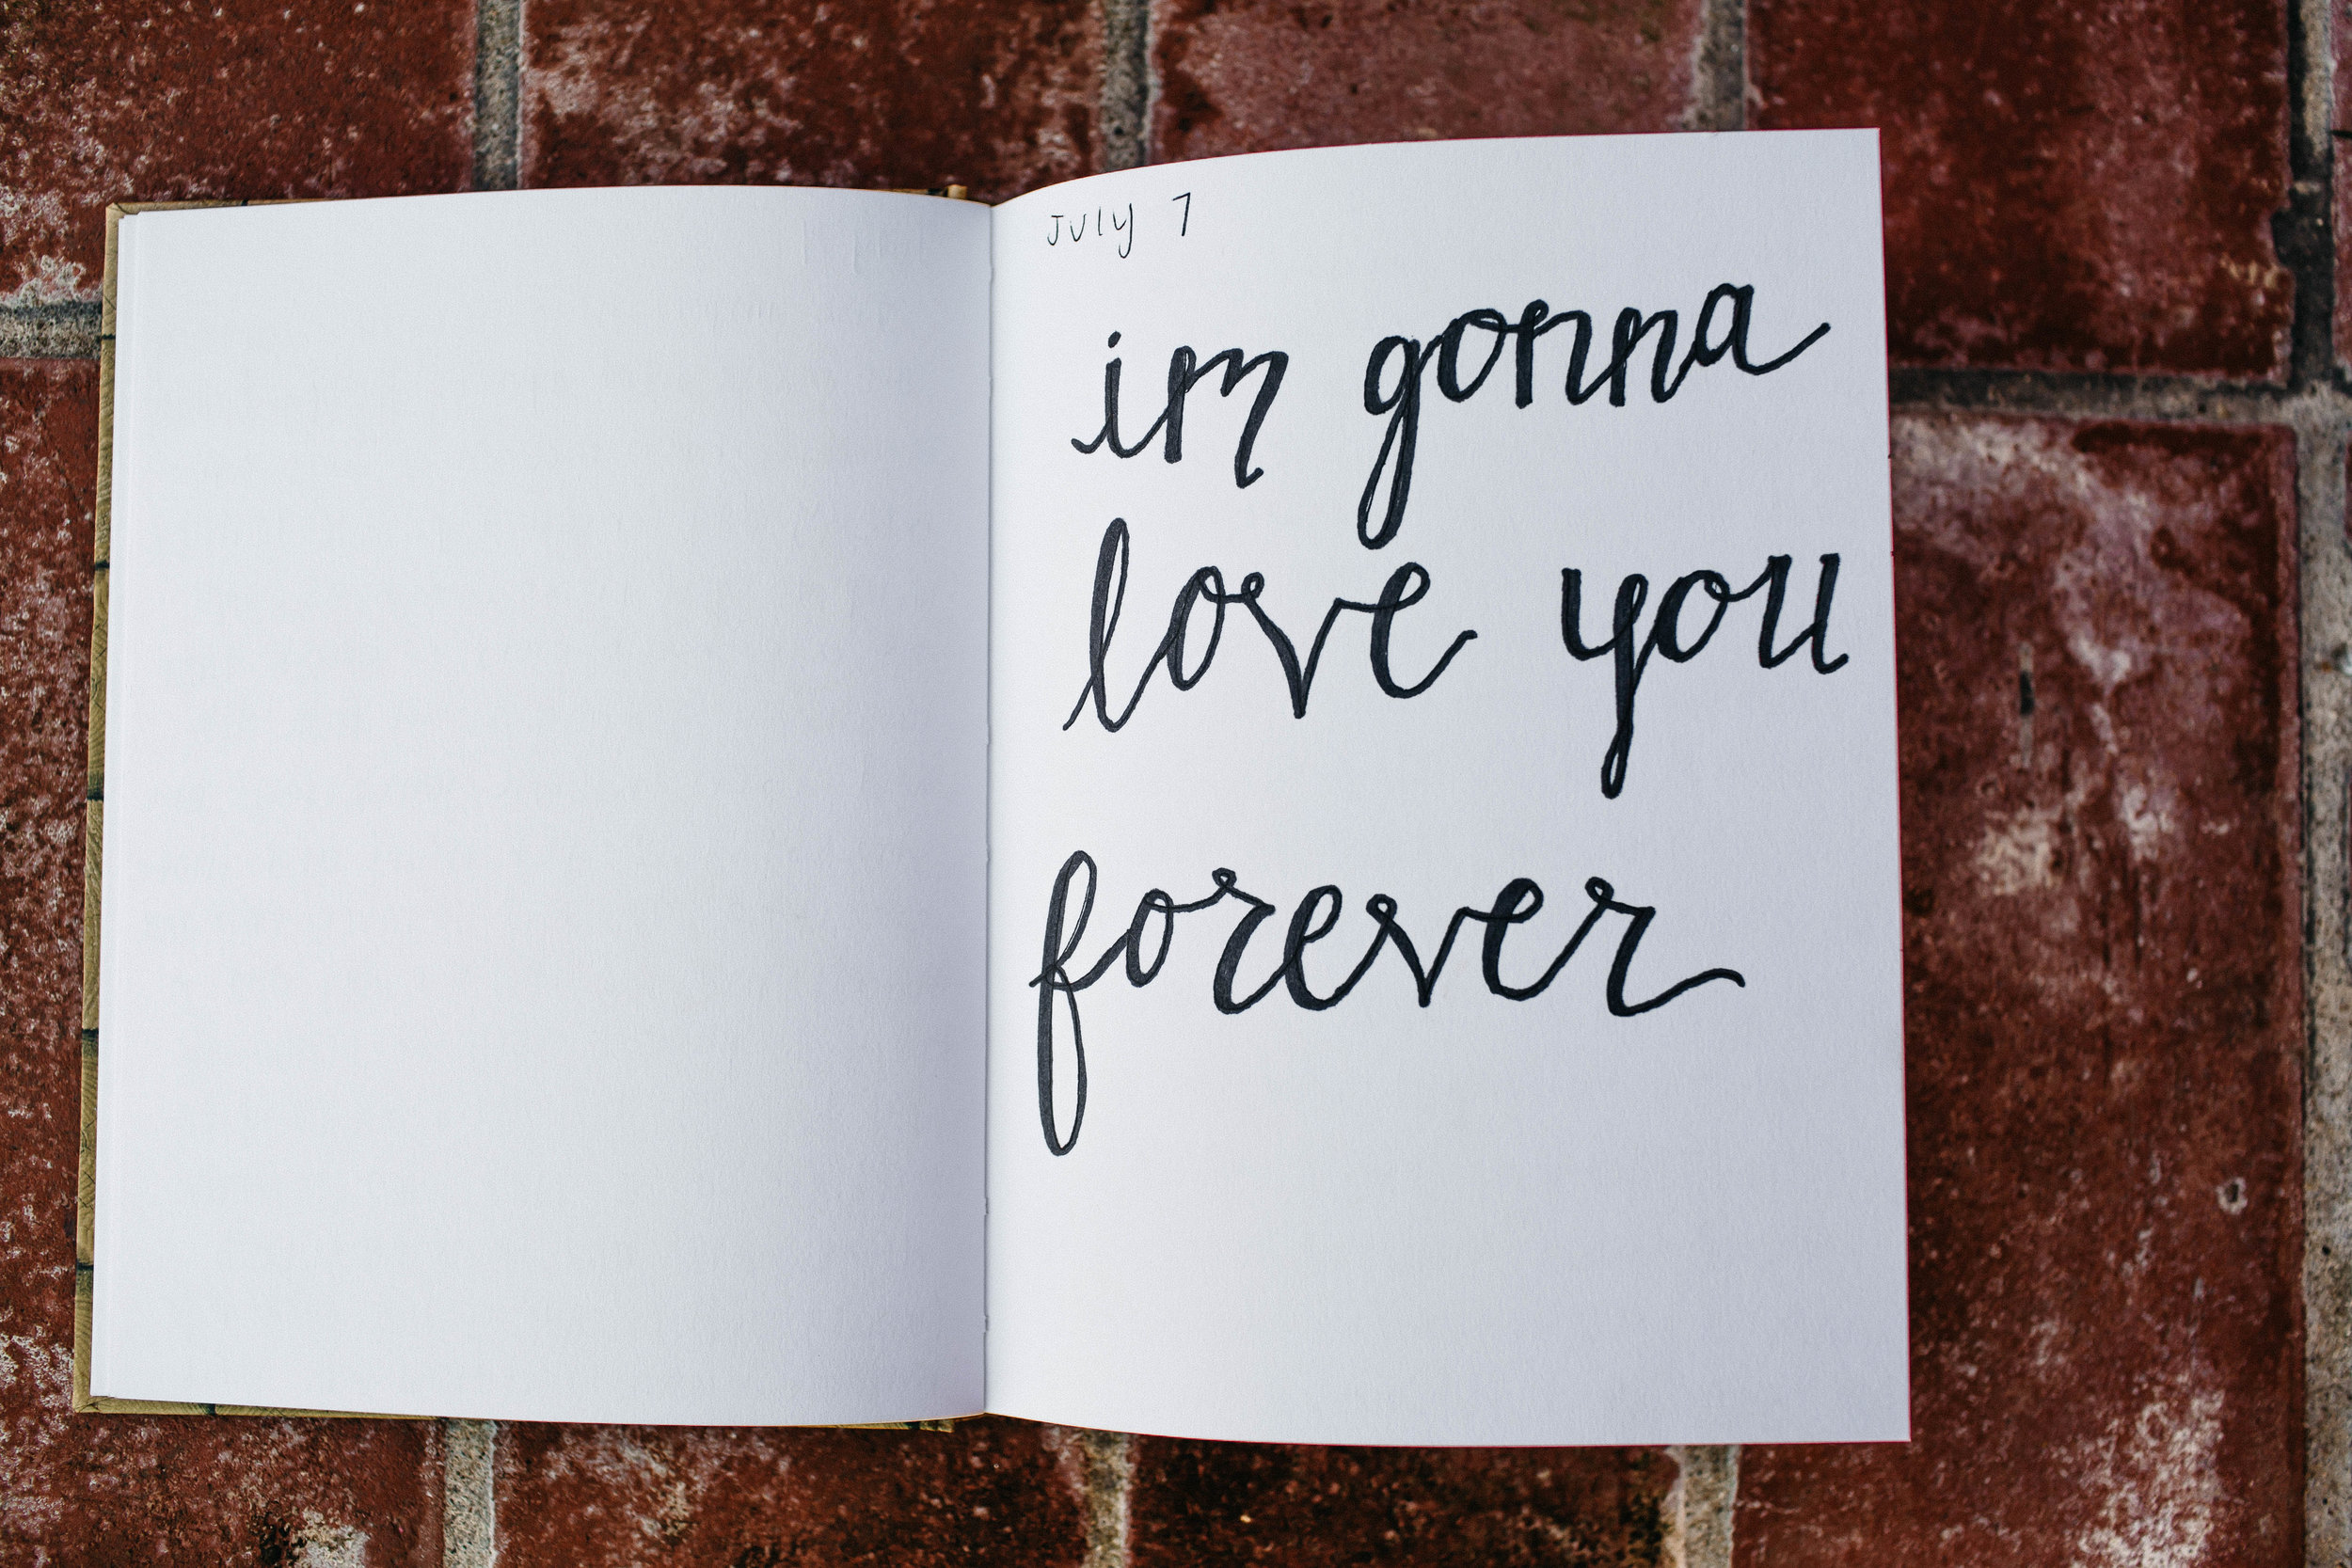 July 7
im gonna
love you
forever